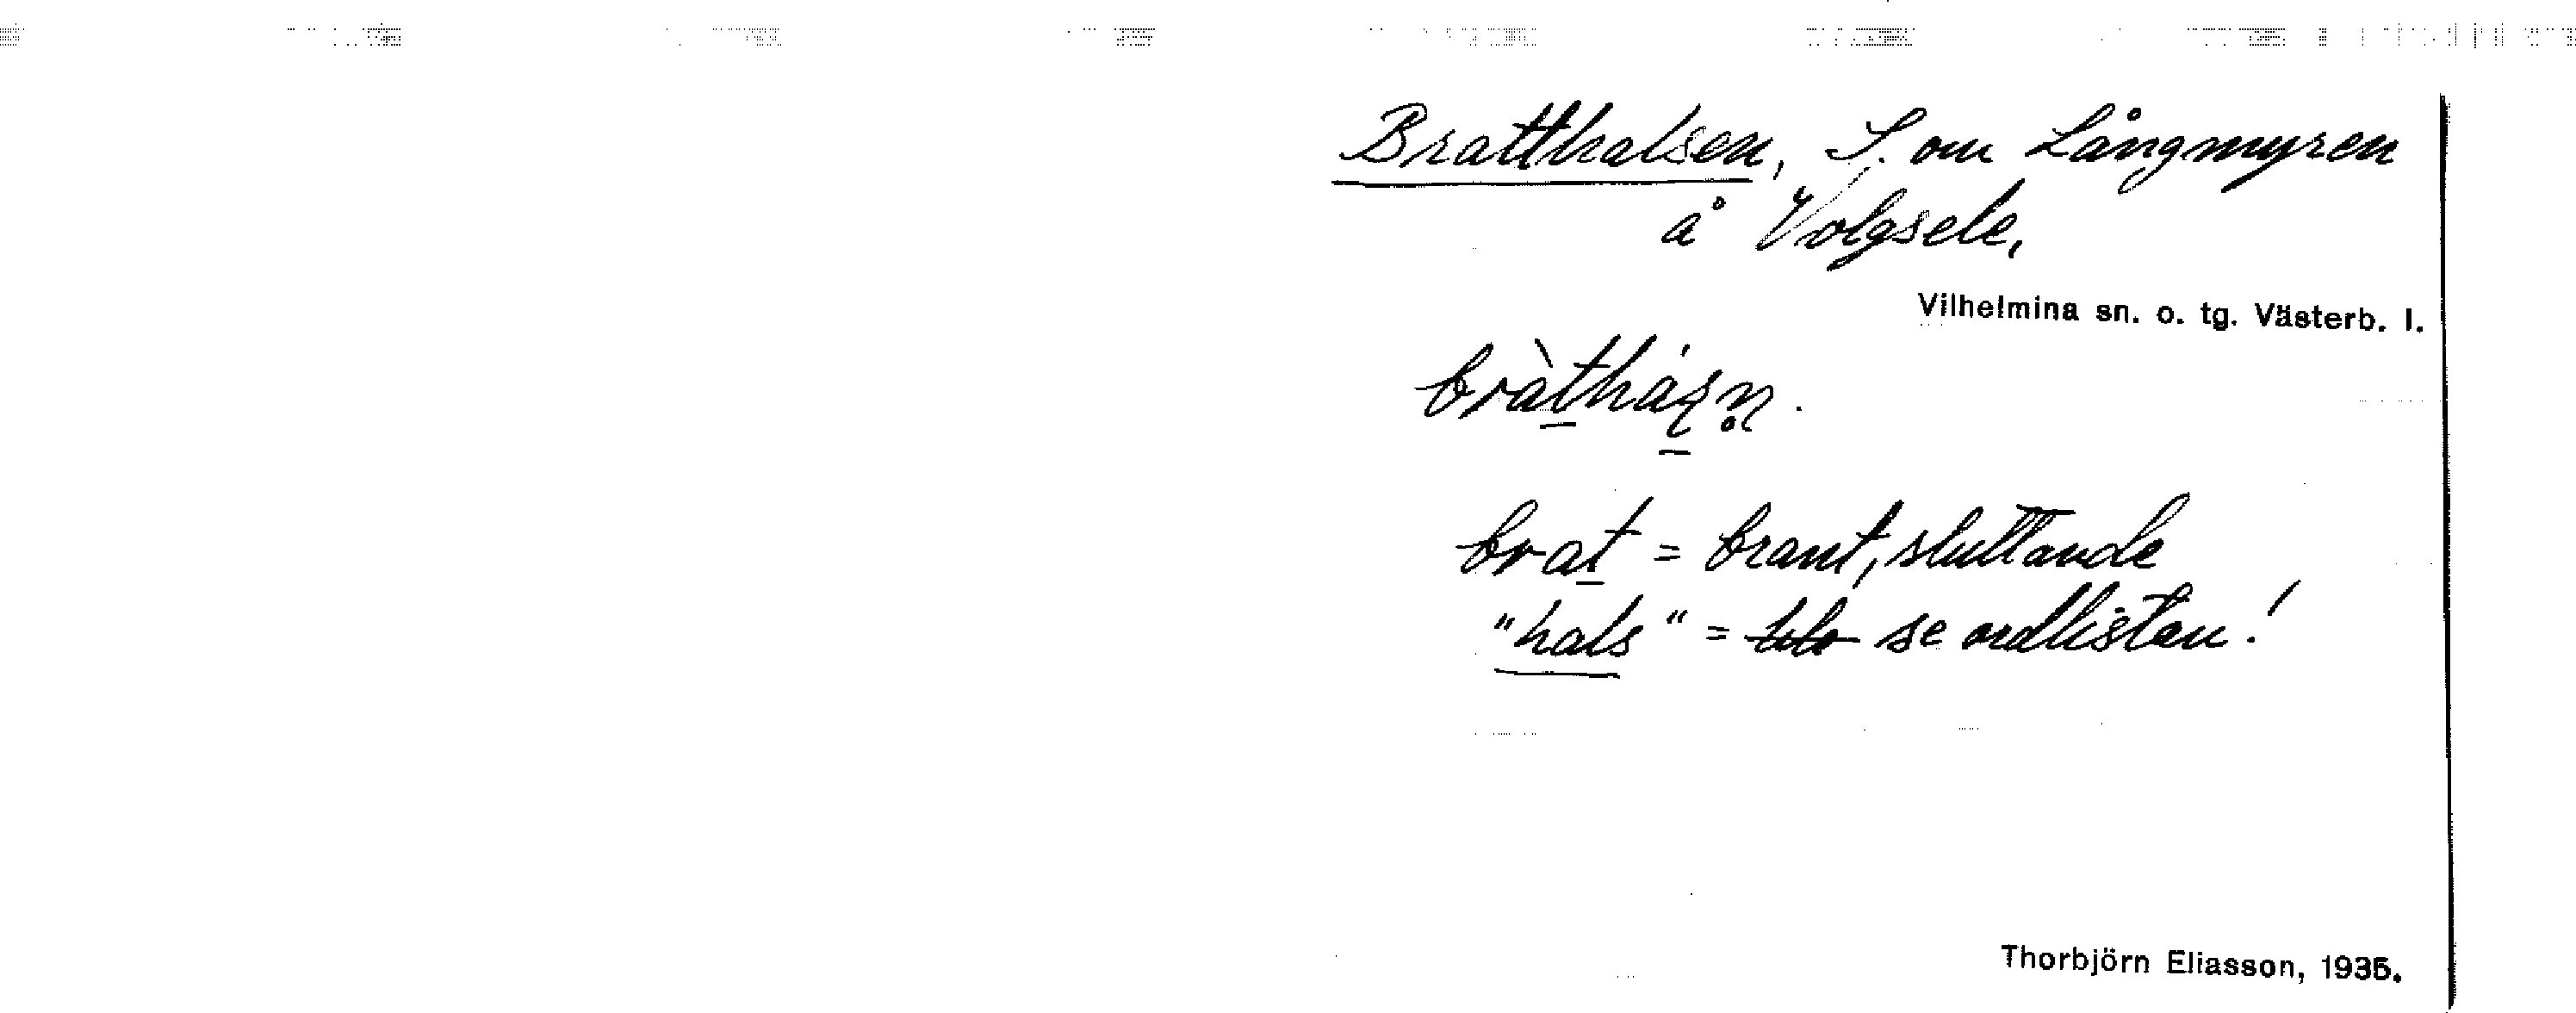 Bratthalsen, S. om Långmyren
å Volgsele,
Vilhelmina sn. o. tg. Västerb. l.
brat = brant, sluttande
"hals" = se ordlistan!
Thorbjörn Eliasson, 1935.